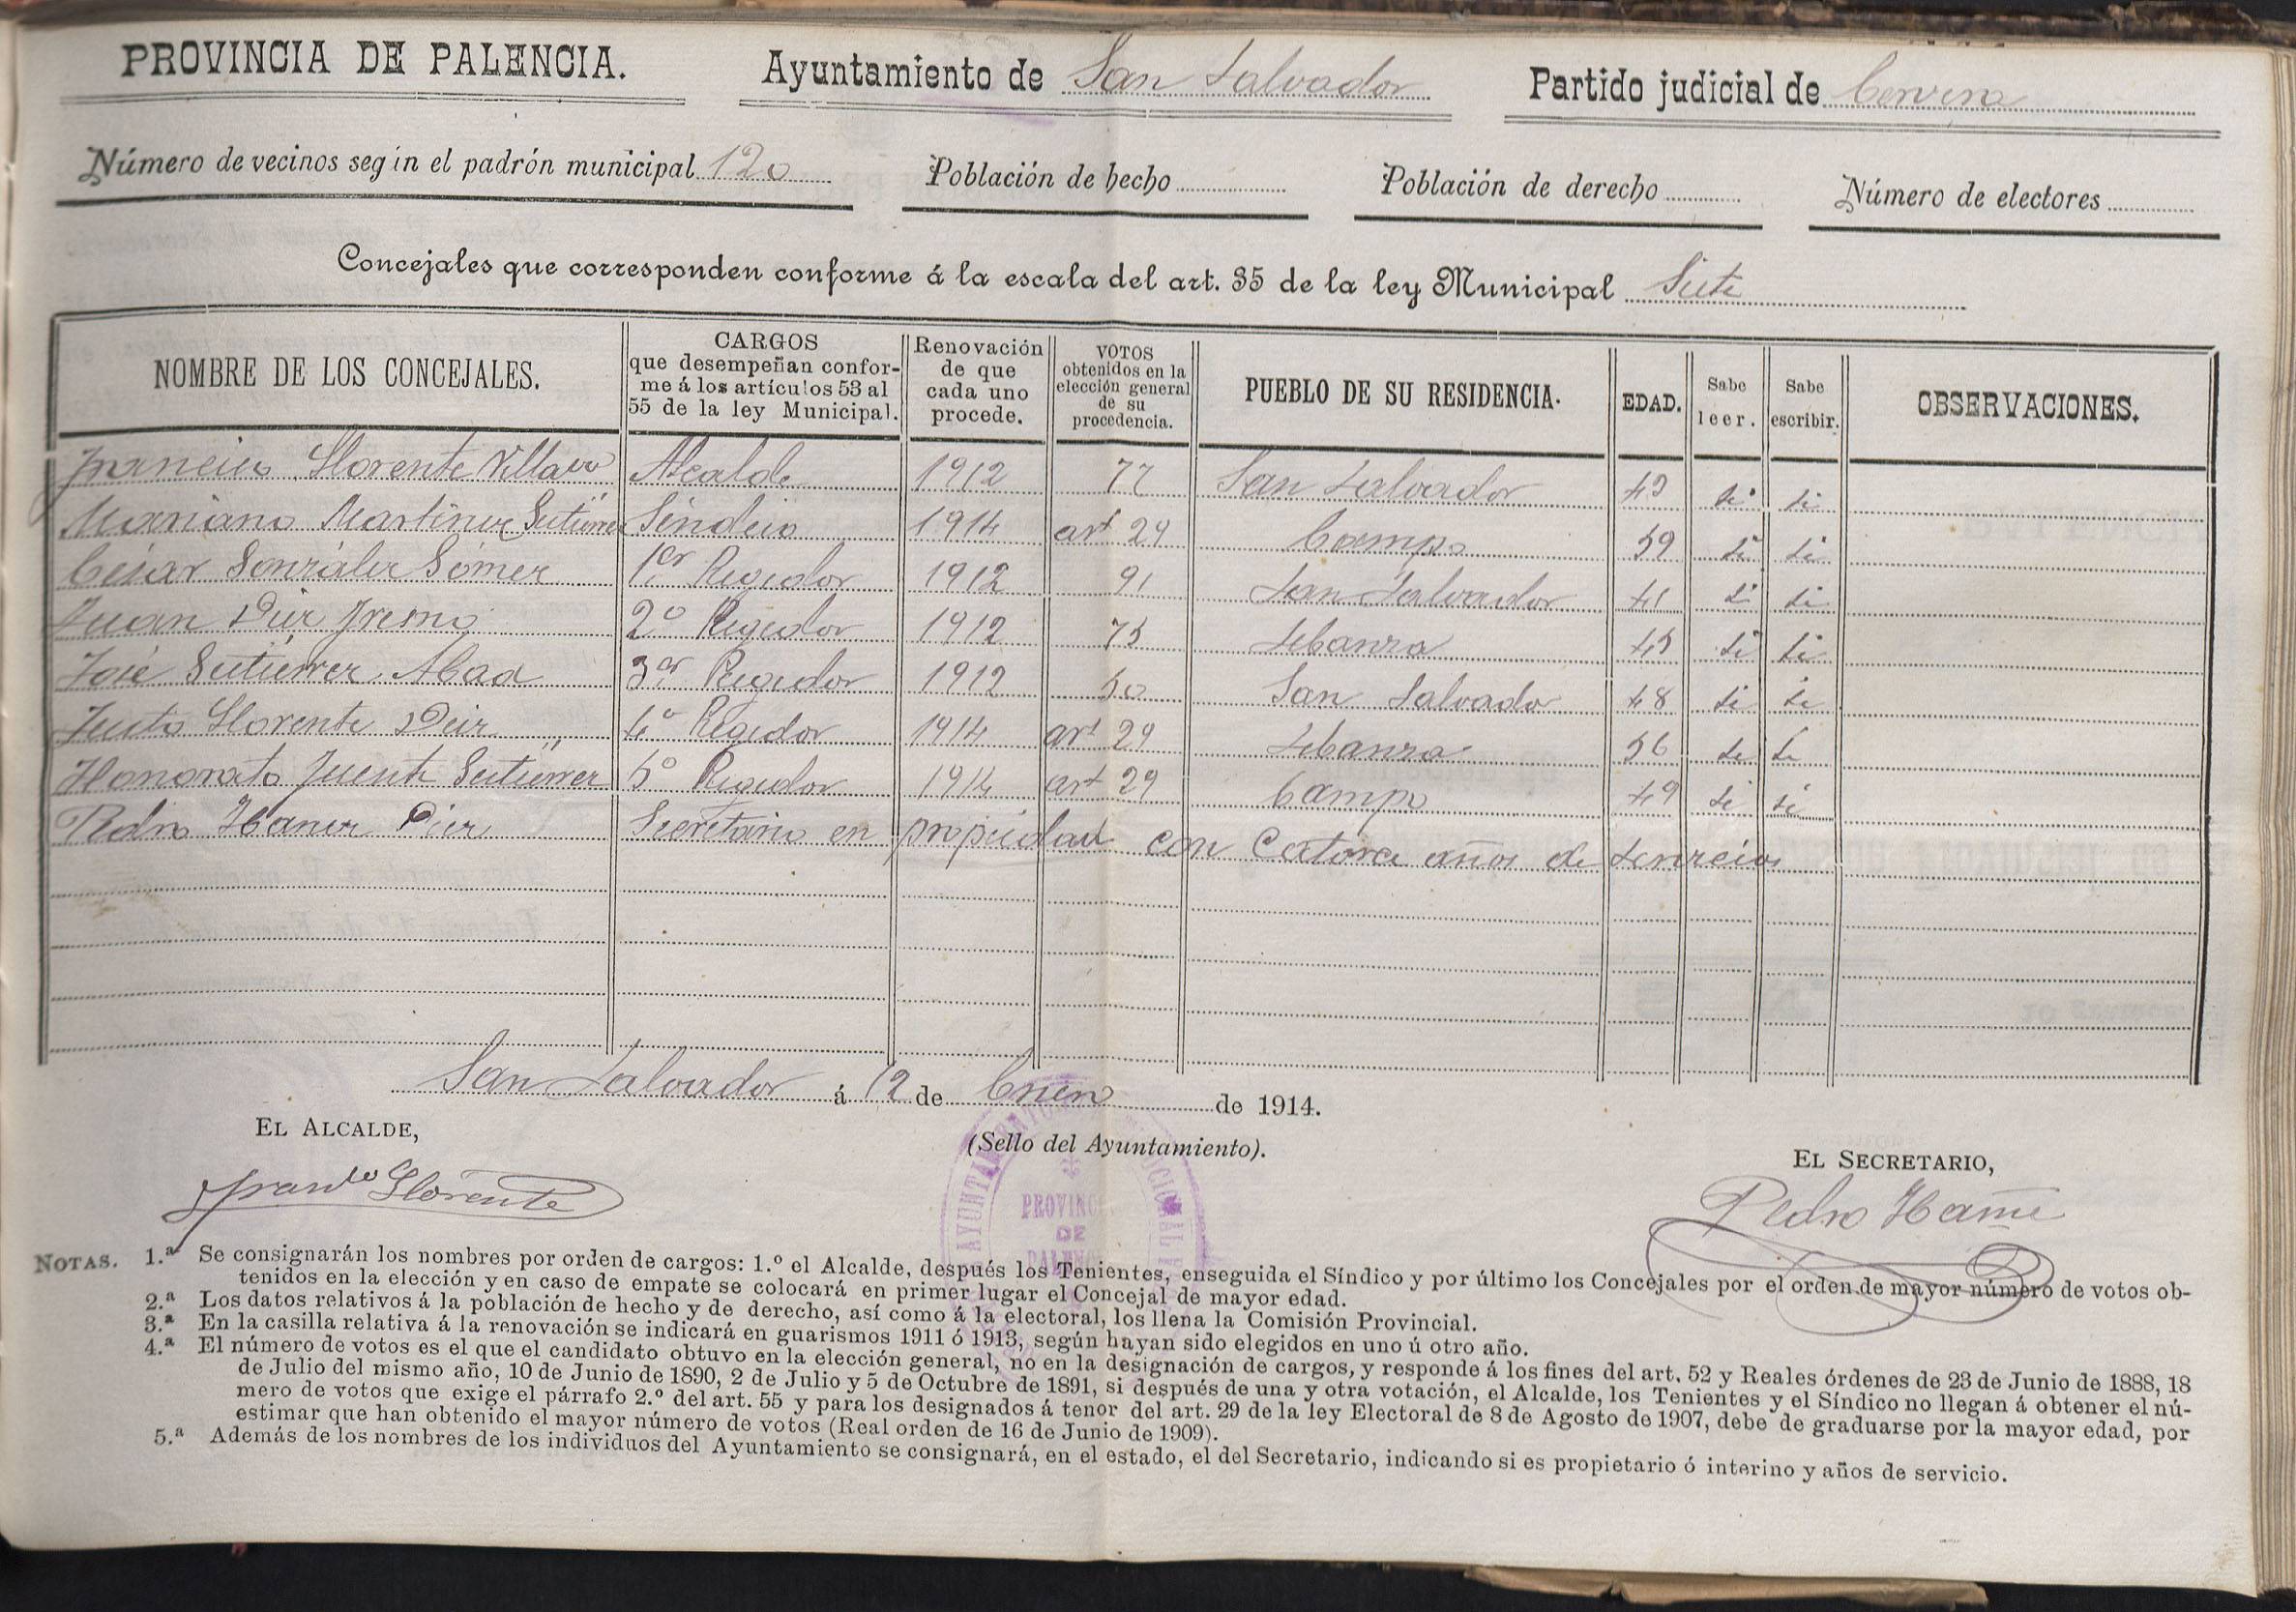 PROVINCIA DE PALENCIA. Ayuntamiento de San Salvador Partido judicial de Cervera
Número de vecinos según el padrón municipal 120 Población de hecho Población de derecho Número de electores
Concejales que corresponden conforme á la escala del art. 35 de la ley Municipal Siete
NOMBRE DE LOS CONCEJALES. CARGOS que desempeñan conforme á los artículos 53 al 55 de la ley Municipal. Renovación de que cada uno procede. VOTOS obtenidos en la elección general de su procedencia. PUEBLO DE SU RESIDENCIA. EDAD. Sabe leer. Sabe escribir. OBSERVACIONES.
Francisco Llorente Alcalde 1912 77 San Salvador si si
Mariano Martinez Gutiérrez Síndico 1914 art 29 Campo 59 si si
César González Gómez 1er Regidor 1912 91 San Salvador 41 si si
Juan Diez 2º Regidor 1912 75 Lebanza 45 si si
José Gutiérrez Abad 3er Regidor 1912 50 San Salvador 48 si si
Justo Llorente Diez 4º Regidor 1914 art 29 Lebanza 56 si si
Honorato Fuente Gutierrez 5º Regidor 1914 art 29 Campo 49 si si
Pedro Diez Secretario en propiedad con Catorce años de servicios
San Salvador á 12 de Enero de 1914.
EL ALCALDE,
(Sello del Ayuntamiento).
EL SECRETARIO,
Llorente
Pedro
AYUNTA
PROVINC
DE
PALENC
NOTAS. 1.ª Se consignarán los nombres por orden de cargos: 1.º el Alcalde, después los Tenientes, enseguida el Síndico y por último los Concejales por el orden de mayor número de votos ob-
tenidos en la elección y en caso de empate se colocará en primer lugar el Concejal de mayor edad.
2.ª Los datos relativos á la población de hecho y de derecho, así como á la electoral, los llena la Comisión Provincial.
3.ª En la casilla relativa á la renovación se indicará en guarismos 1911 ó 1913, según hayan sido elegidos en uno ú otro año.
4.ª El número de votos es el que el candidato obtuvo en la elección general, no en la designación de cargos, y responde á los fines del art. 52 y Reales órdenes de 23 de Junio de 1888, 18
de Julio del mismo año, 10 de Junio de 1890, 2 de Julio y 5 de Octubre de 1891, si después de una y otra votación, el Alcalde, los Tenientes y el Síndico no llegan á obtener el nú-
mero de votos que exige el párrafo 2.º del art. 55 y para los designados á tenor del art. 29 de la ley Electoral de 8 de Agosto de 1907, debe de graduarse por la mayor edad, por
estimar que han obtenido el mayor número de votos (Real orden de 16 de Junio de 1909).
5.ª Además de los nombres de los individuos del Ayuntamiento se consignará, en el estado, el del Secretario, indicando si es propietario ó interino y años de servicio.